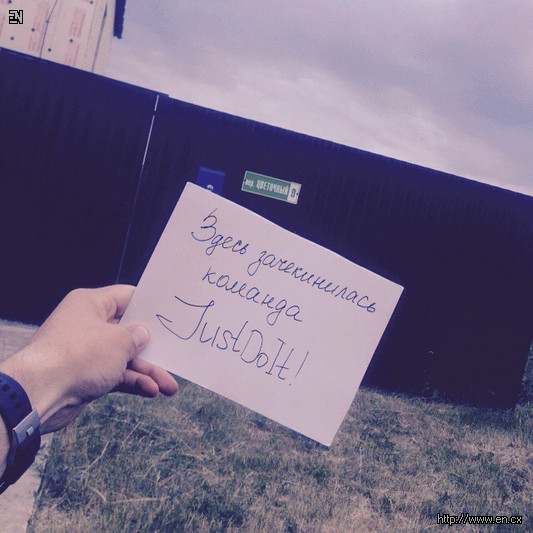 EN
пер. ЦВЕТОЧНЫЙ 9
Здесь зачекинилась
команда
JustDoIt!
http://www.en.cx